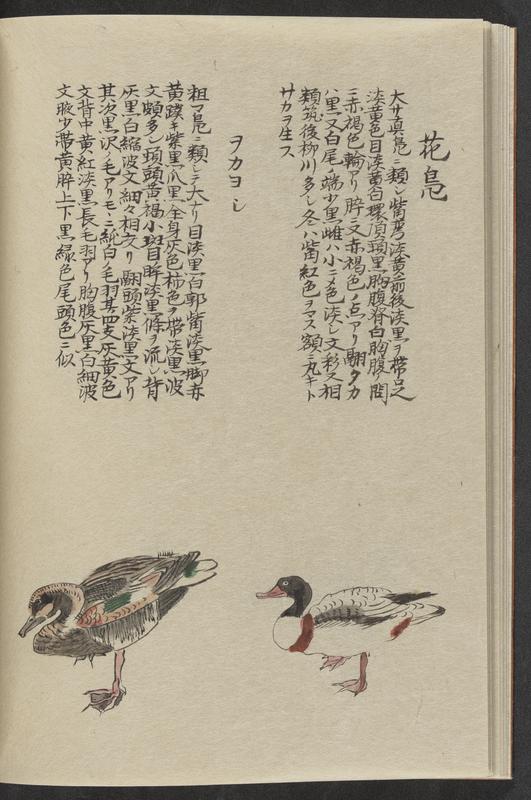 花鳧
大サ真鳧ニ類シ觜弯淡黄前後淡黒ヲ帯足
淡黄色目淡黄白環頂頭黒胸腹脊白胸腹ノ間
ニ赤褐色輪アリ脺ニ又赤褐色ノ点アリ翮タカ
ハ黒ク又白尾ノ端少黒雌ハ小ニメ色淡シ文彩又相
類筑後柳川多シ冬ハ觜紅色ヲマス額ニ丸キト
サカヲ生ス
ヲカヨシ
粗マ鳧ニ類シテ大ナリ目淡黒白郭觜淡黒脚赤
黄蹼キ紫黒爪黒全身灰色柿色ヲ帯淡黒波
文頗多シ頭頭黄褐小斑目眸淡黒條ヲ流シ背
灰黒白縮波文細々相交り翮頭紫淡黒文アリ
其次黒沢ノ毛アリモヽニ純白ノ毛羽其四支灰黄色
文背中黄紅淡黒長毛羽アリ胸腹灰黒白細波
文腋少帯黄脺上下黒緑色尾頭色ニ似